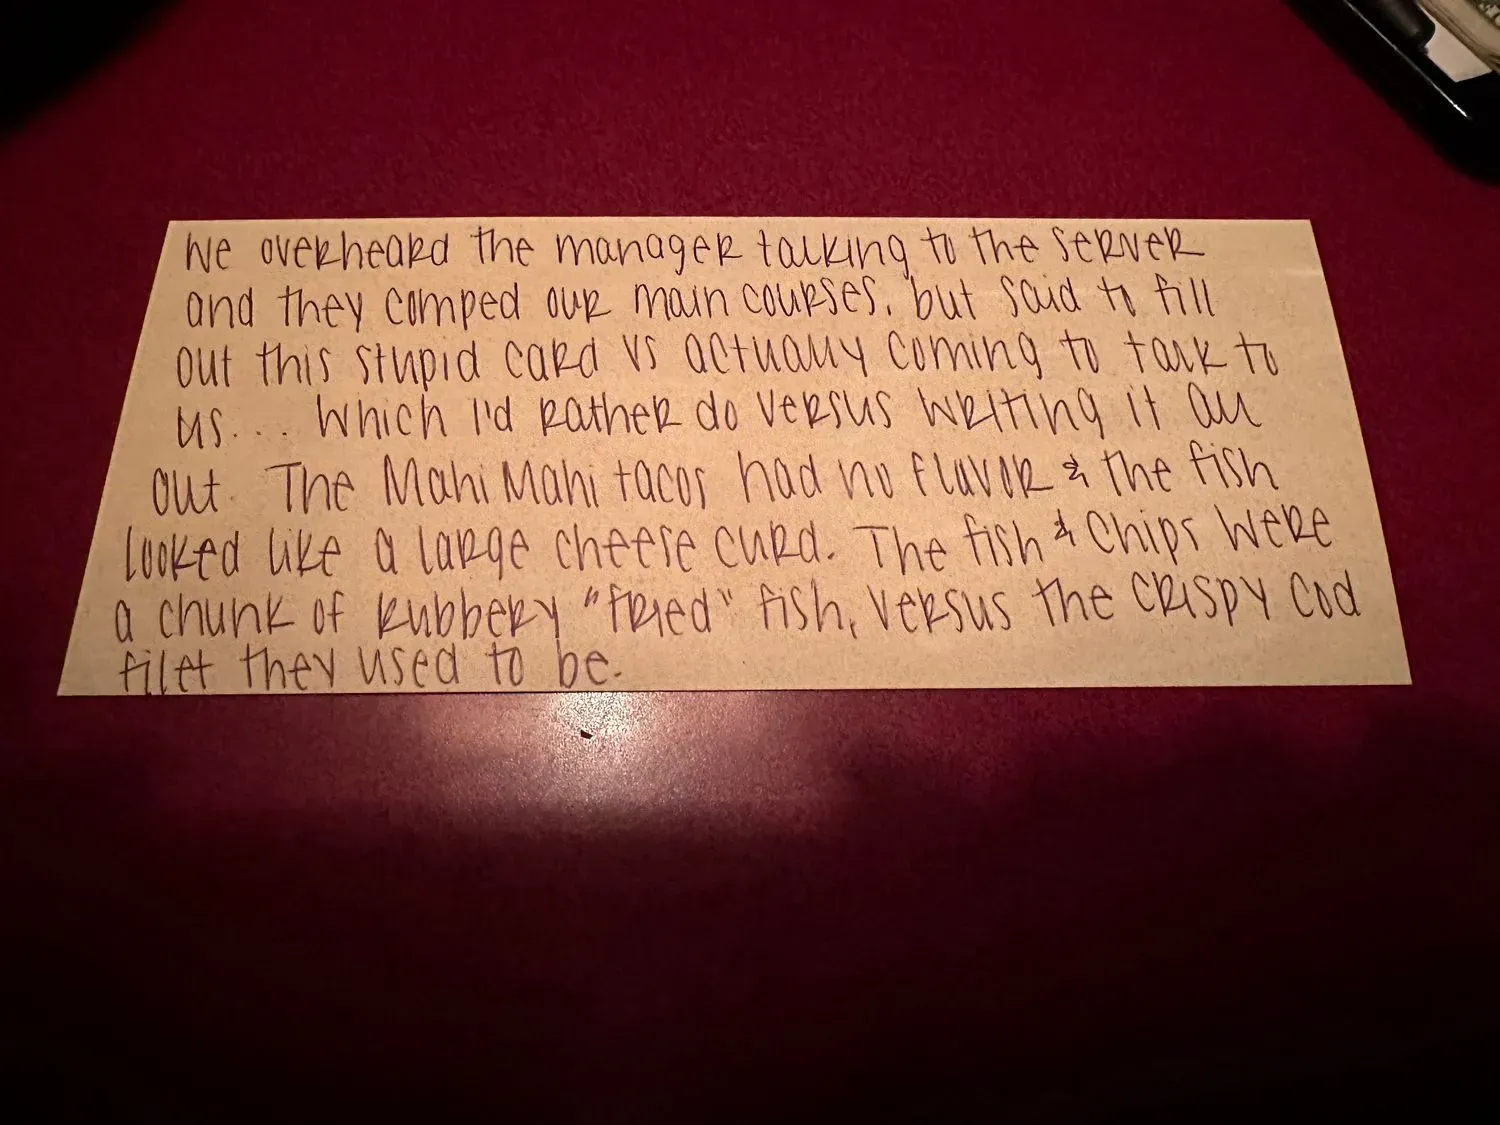 We overheard the manager talking to the server
and they comped our main courses, but said to fill
out this stupid card vs actually coming to talk to
us... which I'd rather do versus writing it all
out. The Mahi Mahi tacos had no flavor & the fish
looked like a large cheese curd. The fish & chips were
a chunk of rubbery "fried" fish, versus the crispy cod
filet they used to be.